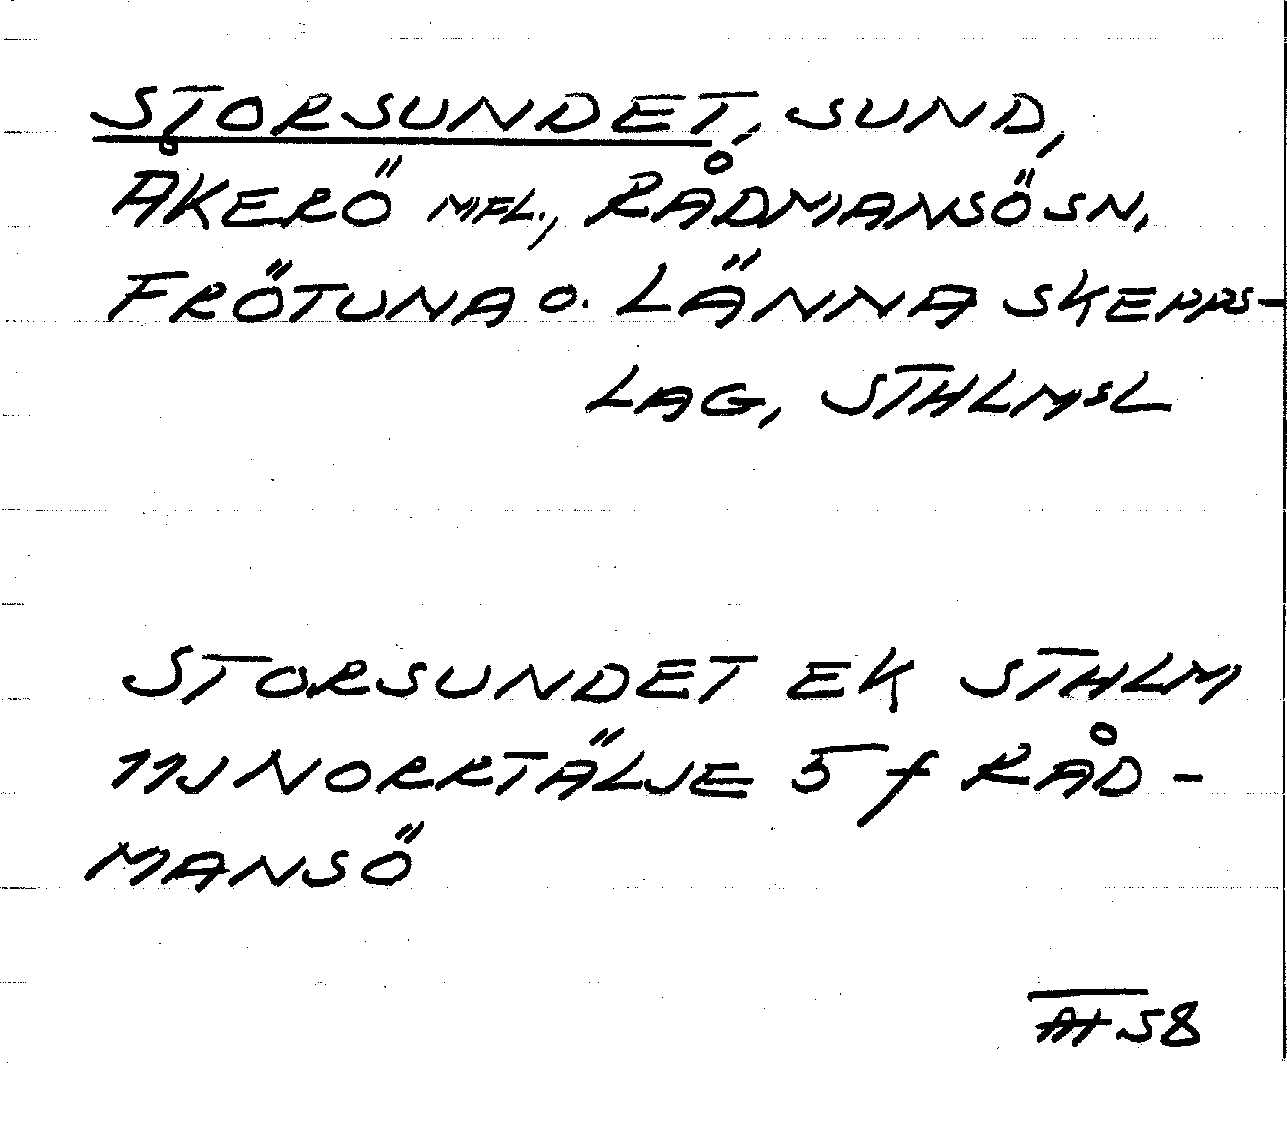 STORSUNDET, SUND,
ÅKERÖ MFL., RÅDMANSÖ SN,
FRÖTUNA O. LÄNNA SKEPPS-
LAG, STHLMSL
STORSUNDET EK STHLM
11J NORRTÄLJE 5 f RÅD-
MANSÖ
58